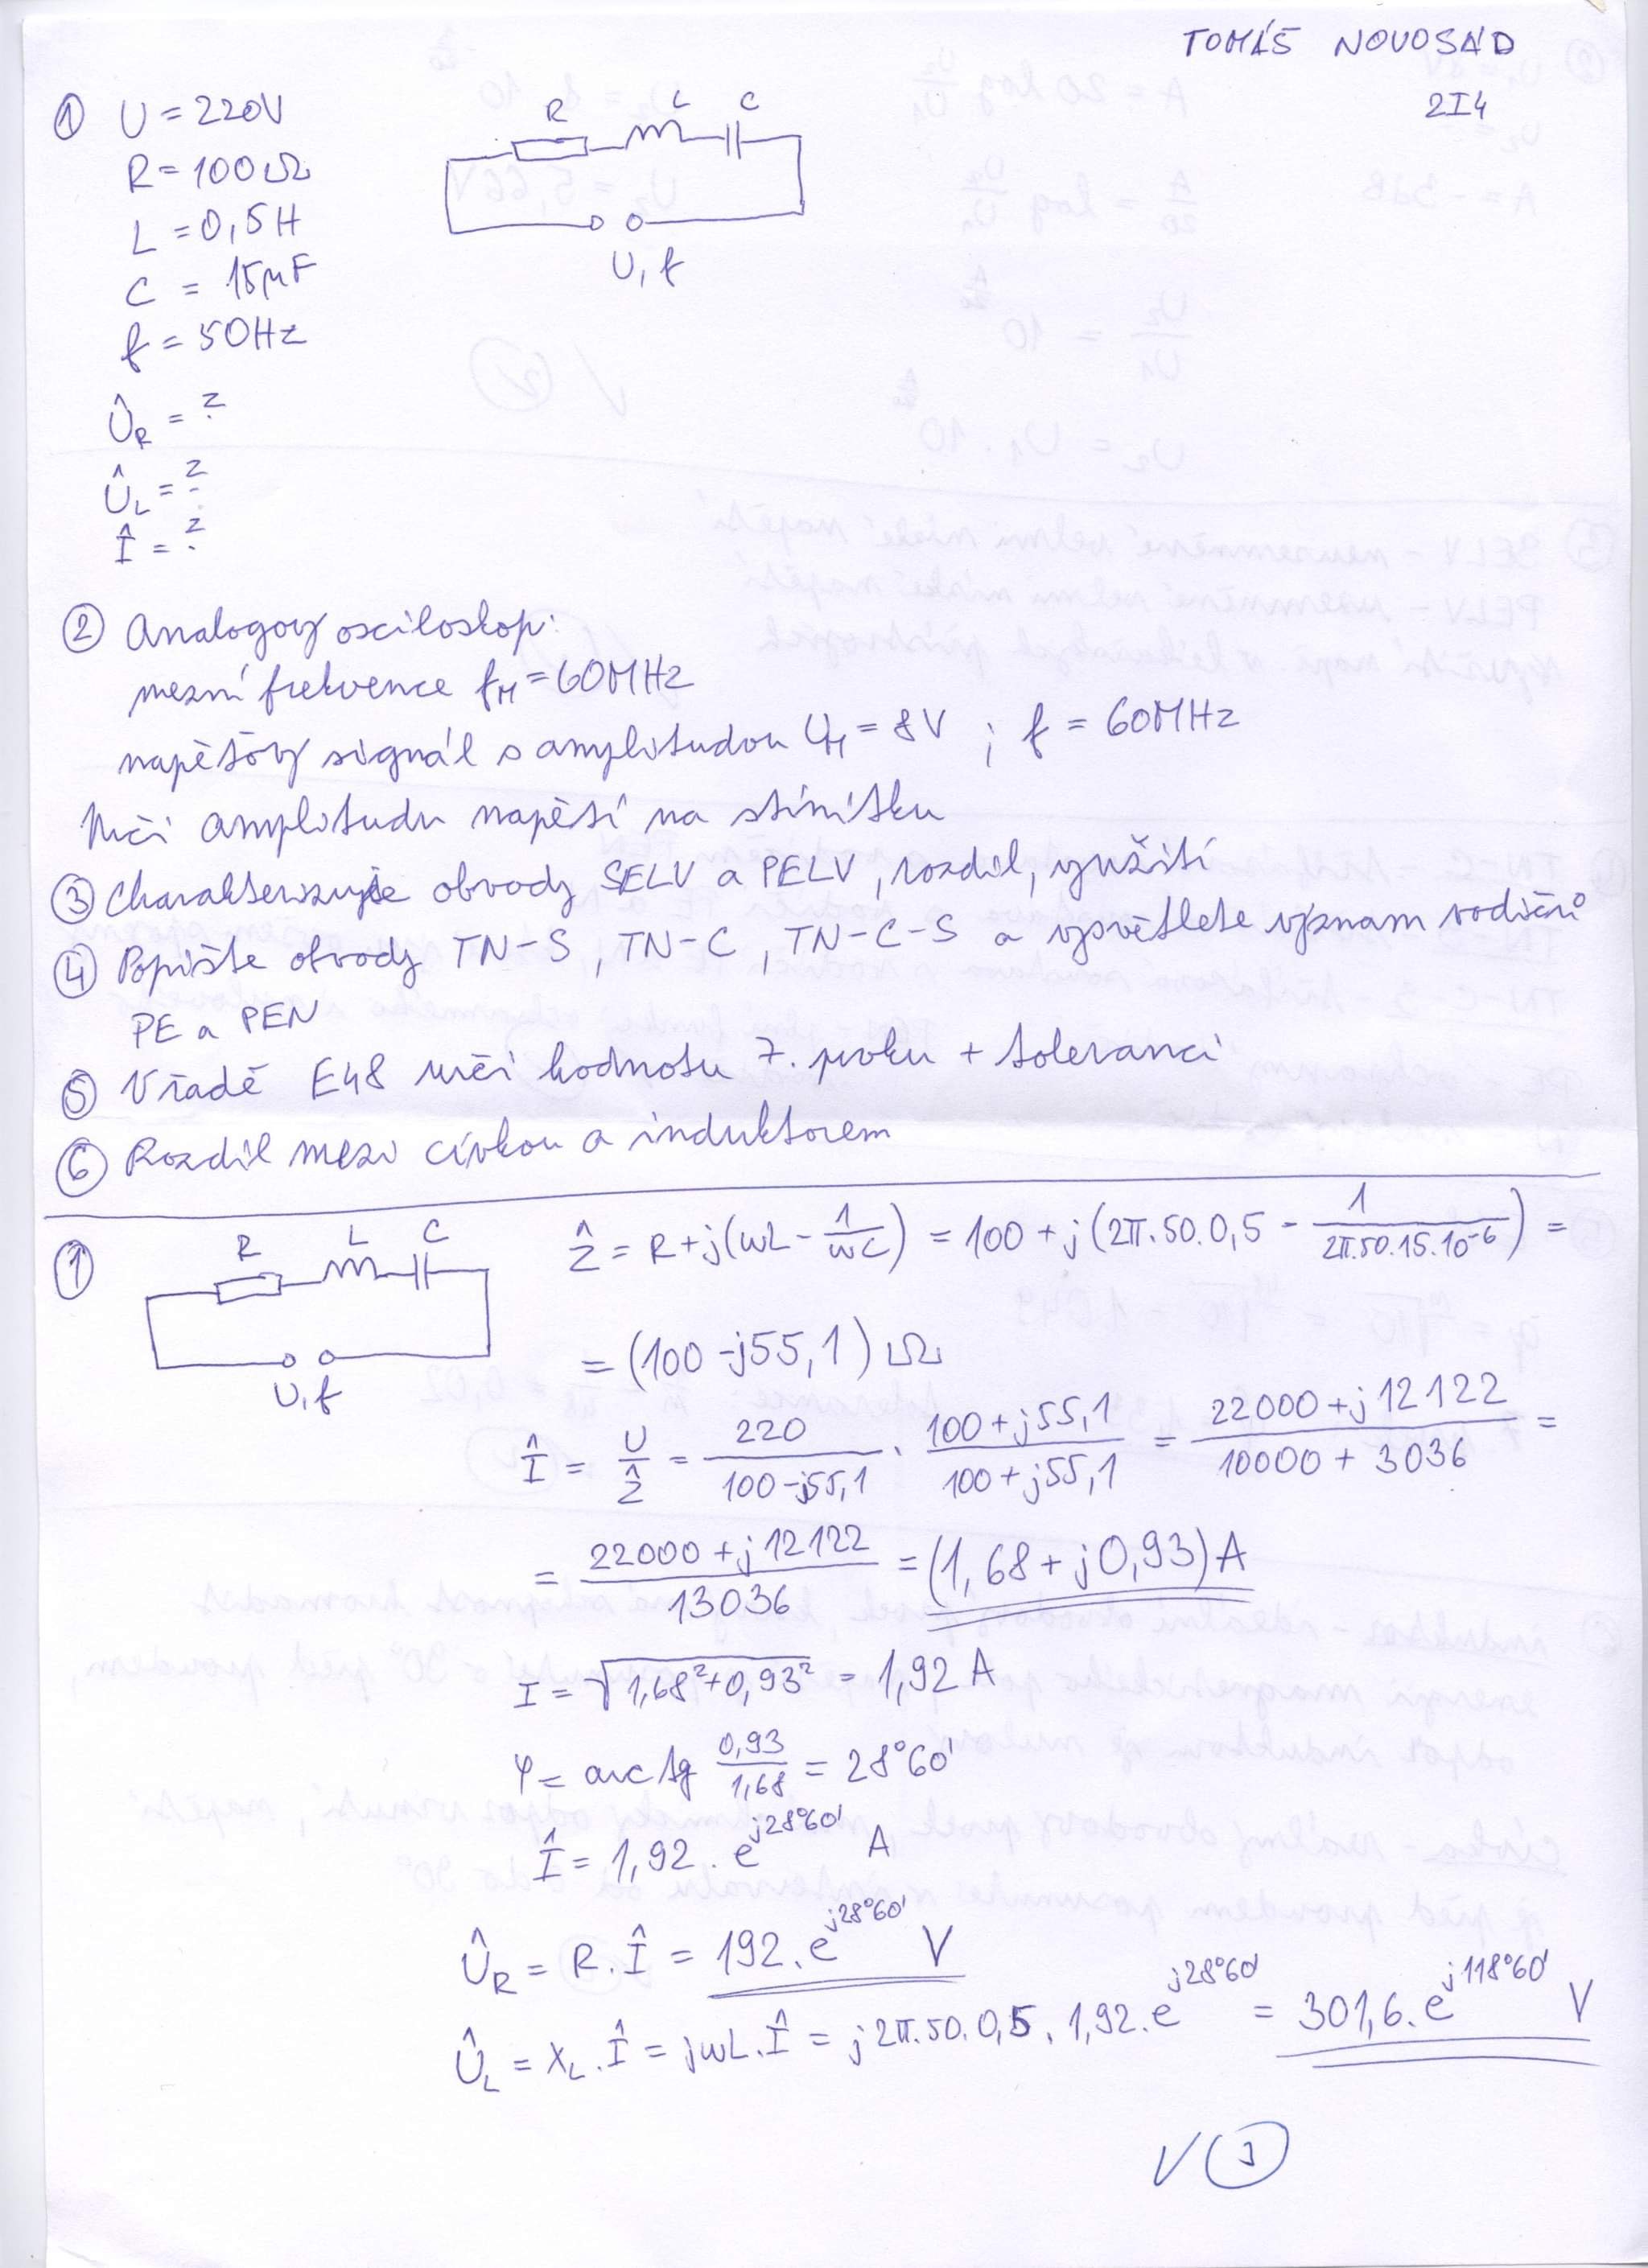 TOMÁŠ NOVOSAD
2I4
① U = 220V
R = 100Ω
L = 0,5H
C = 15μF
f = 50Hz
R L C
U, f
Û_R = ?
Û_L = ?
Î = ?
② Analogový osciloskop:
mezní frekvence f_M = 60MHz
napěťový signál s amplitudou U_1 = 8V ; f = 60MHz
Urči amplitudu napětí na stínítku
③ Charakterizujte obvody SELV a PELV, rozdíl, využití
④ Popište obvody TN-S, TN-C, TN-C-S a vysvětlete význam vodičů
PE a PEN
⑤ V řadě E48 urči hodnotu 7. prvku + toleranci
⑥ Rozdíl mezi cívkou a induktorem
①
R L C
U, f
Ẑ = R+j(ωL - 1/ωC) = 100 + j(2π.50.0,5 - 1/2π.50.15.10⁻⁶) =
= (100 -j55,1) Ω
Î = U/Ẑ = 220/100-j55,1 . 100+j55,1/100+j55,1 = 22000+j12122/10000 + 3036 =
= 22000 + j12122/13036 = (1,68 + j0,93)A
I = √1,68²+0,93² = 1,92 A
φ = arctg 0,93/1,68 = 28°60'
Î = 1,92 . e^j28°60' A
Û_R = R.Î = 192.e^j28°60' V
Û_L = X_L.Î = jωL.Î = j2π.50.0,5.1,92.e^j28°60' = 301,6.e^j118°60' V
√ ③